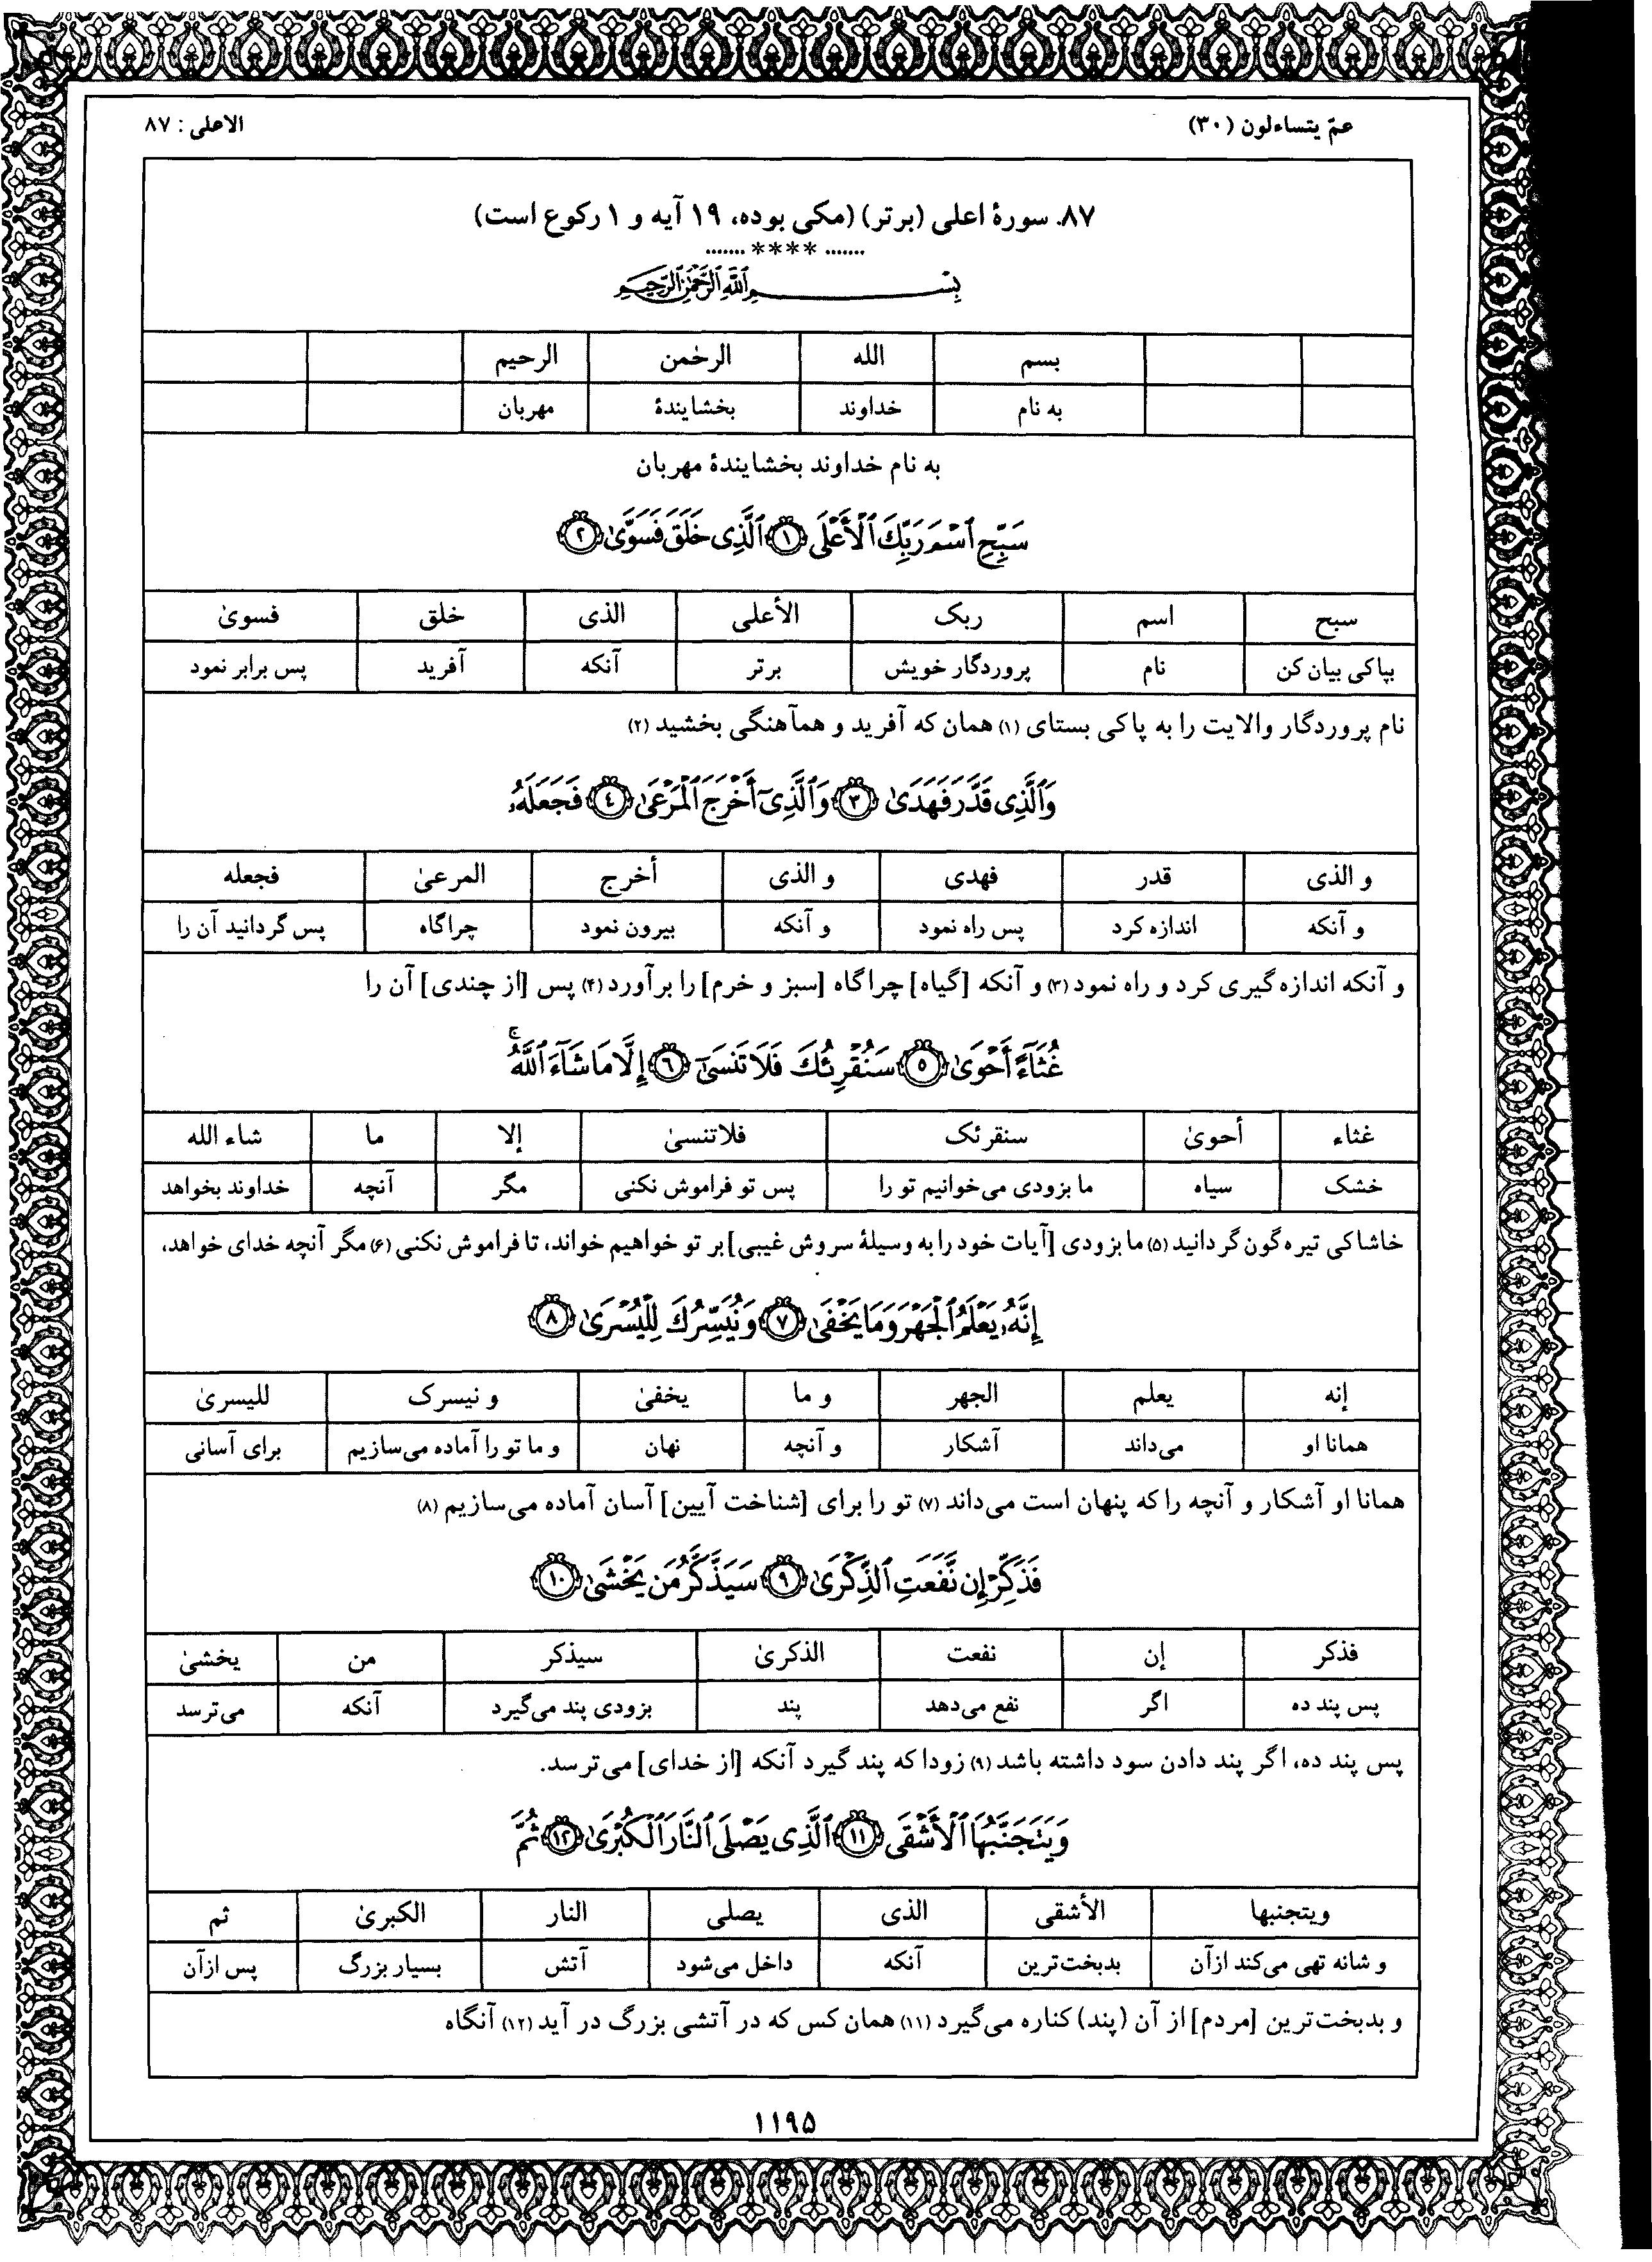 عمّ یتساءلون (۳۰)
الاعلی : ۸۷
۸۷. سورهٔ اعلی (برتر) (مکی بوده، ۱۹ آیه و ۱ رکوع است)
....... **** .......
بِسْمِ اللَّهِ الرَّحْمَٰنِ الرَّحِيمِ
بسم الله الرحٰمن الرحیم
به نام خداوند بخشایندهٔ مهربان
به نام خداوند بخشایندهٔ مهربان
سَبِّحِ ٱسْمَ رَبِّكَ ٱلْأَعْلَى ١ ٱلَّذِى خَلَقَ فَسَوَّىٰ ٢
سبح اسم ربک الأعلی الذی خلق فسویٰ
بپاکی بیان کن نام پروردگار خویش برتر آنکه آفرید پس برابر نمود
نام پروردگار والایت را به پاکی بستای (۱) همان که آفرید و همآهنگی بخشید (۲)
وَٱلَّذِى قَدَّرَ فَهَدَىٰ ٣ وَٱلَّذِىٓ أَخْرَجَ ٱلْمَرْعَىٰ ٤ فَجَعَلَهُۥ
و الذی قدر فهدی و الذی أخرج المرعیٰ فجعله
و آنکه اندازه کرد پس راه نمود و آنکه بیرون نمود چراگاه پس گردانید آن را
و آنکه اندازه‌گیری کرد و راه نمود (۳) و آنکه [گیاه] چراگاه [سبز و خرم] را برآورد (۴) پس [از چندی] آن را
غُثَآءً أَحْوَىٰ ٥ سَنُقْرِئُكَ فَلَا تَنسَىٰٓ ٦ إِلَّا مَا شَآءَ ٱللَّهُ ۚ
غثاء أحویٰ سنقرئک فلاتنسیٰ إلا ما شاء الله
خشک سیاه ما بزودی می‌خوانیم تو را پس تو فراموش نکنی مگر آنچه خداوند بخواهد
خاشاکی تیره‌گون گردانید (۵) ما بزودی [آیات خود را به وسیلهٔ سروش غیبی] بر تو خواهیم خواند، تا فراموش نکنی (۶) مگر آنچه خدای خواهد،
إِنَّهُۥ يَعْلَمُ ٱلْجَهْرَ وَمَا يَخْفَىٰ ٧ وَنُيَسِّرُكَ لِلْيُسْرَىٰ ٨
إنه یعلم الجهر و ما یخفیٰ و نیسرک للیسریٰ
همانا او می‌داند آشکار و آنچه نهان و ما تو را آماده می‌سازیم برای آسانی
همانا او آشکار و آنچه را که پنهان است می‌داند (۷) تو را برای [شناخت آیین] آسان آماده می‌سازیم (۸)
فَذَكِّرْ إِن نَّفَعَتِ ٱلذِّكْرَىٰ ٩ سَيَذَّكَّرُ مَن يَخْشَىٰ ١٠
فذکر إن نفعت الذکریٰ سیذکر من یخشیٰ
پس پند ده اگر نفع می‌دهد پند بزودی پند می‌گیرد آنکه می‌ترسد
پس پند ده، اگر پند دادن سود داشته باشد (۹) زودا که پند گیرد آنکه [از خدای] می‌ترسد.
وَيَتَجَنَّبُهَا ٱلْأَشْقَى ١١ ٱلَّذِى يَصْلَى ٱلنَّارَ ٱلْكُبْرَىٰ ١٢ ثُمَّ
ویتجنبها الأشقی الذی یصلی النار الکبریٰ ثم
و شانه تهی می‌کند ازآن بدبخت‌ترین آنکه داخل می‌شود آتش بسیار بزرگ پس ازآن
و بدبخت‌ترین [مردم] از آن (پند) کناره می‌گیرد (۱۱) همان کس که در آتشی بزرگ در آید (۱۲) آنگاه
۱۱۹۵